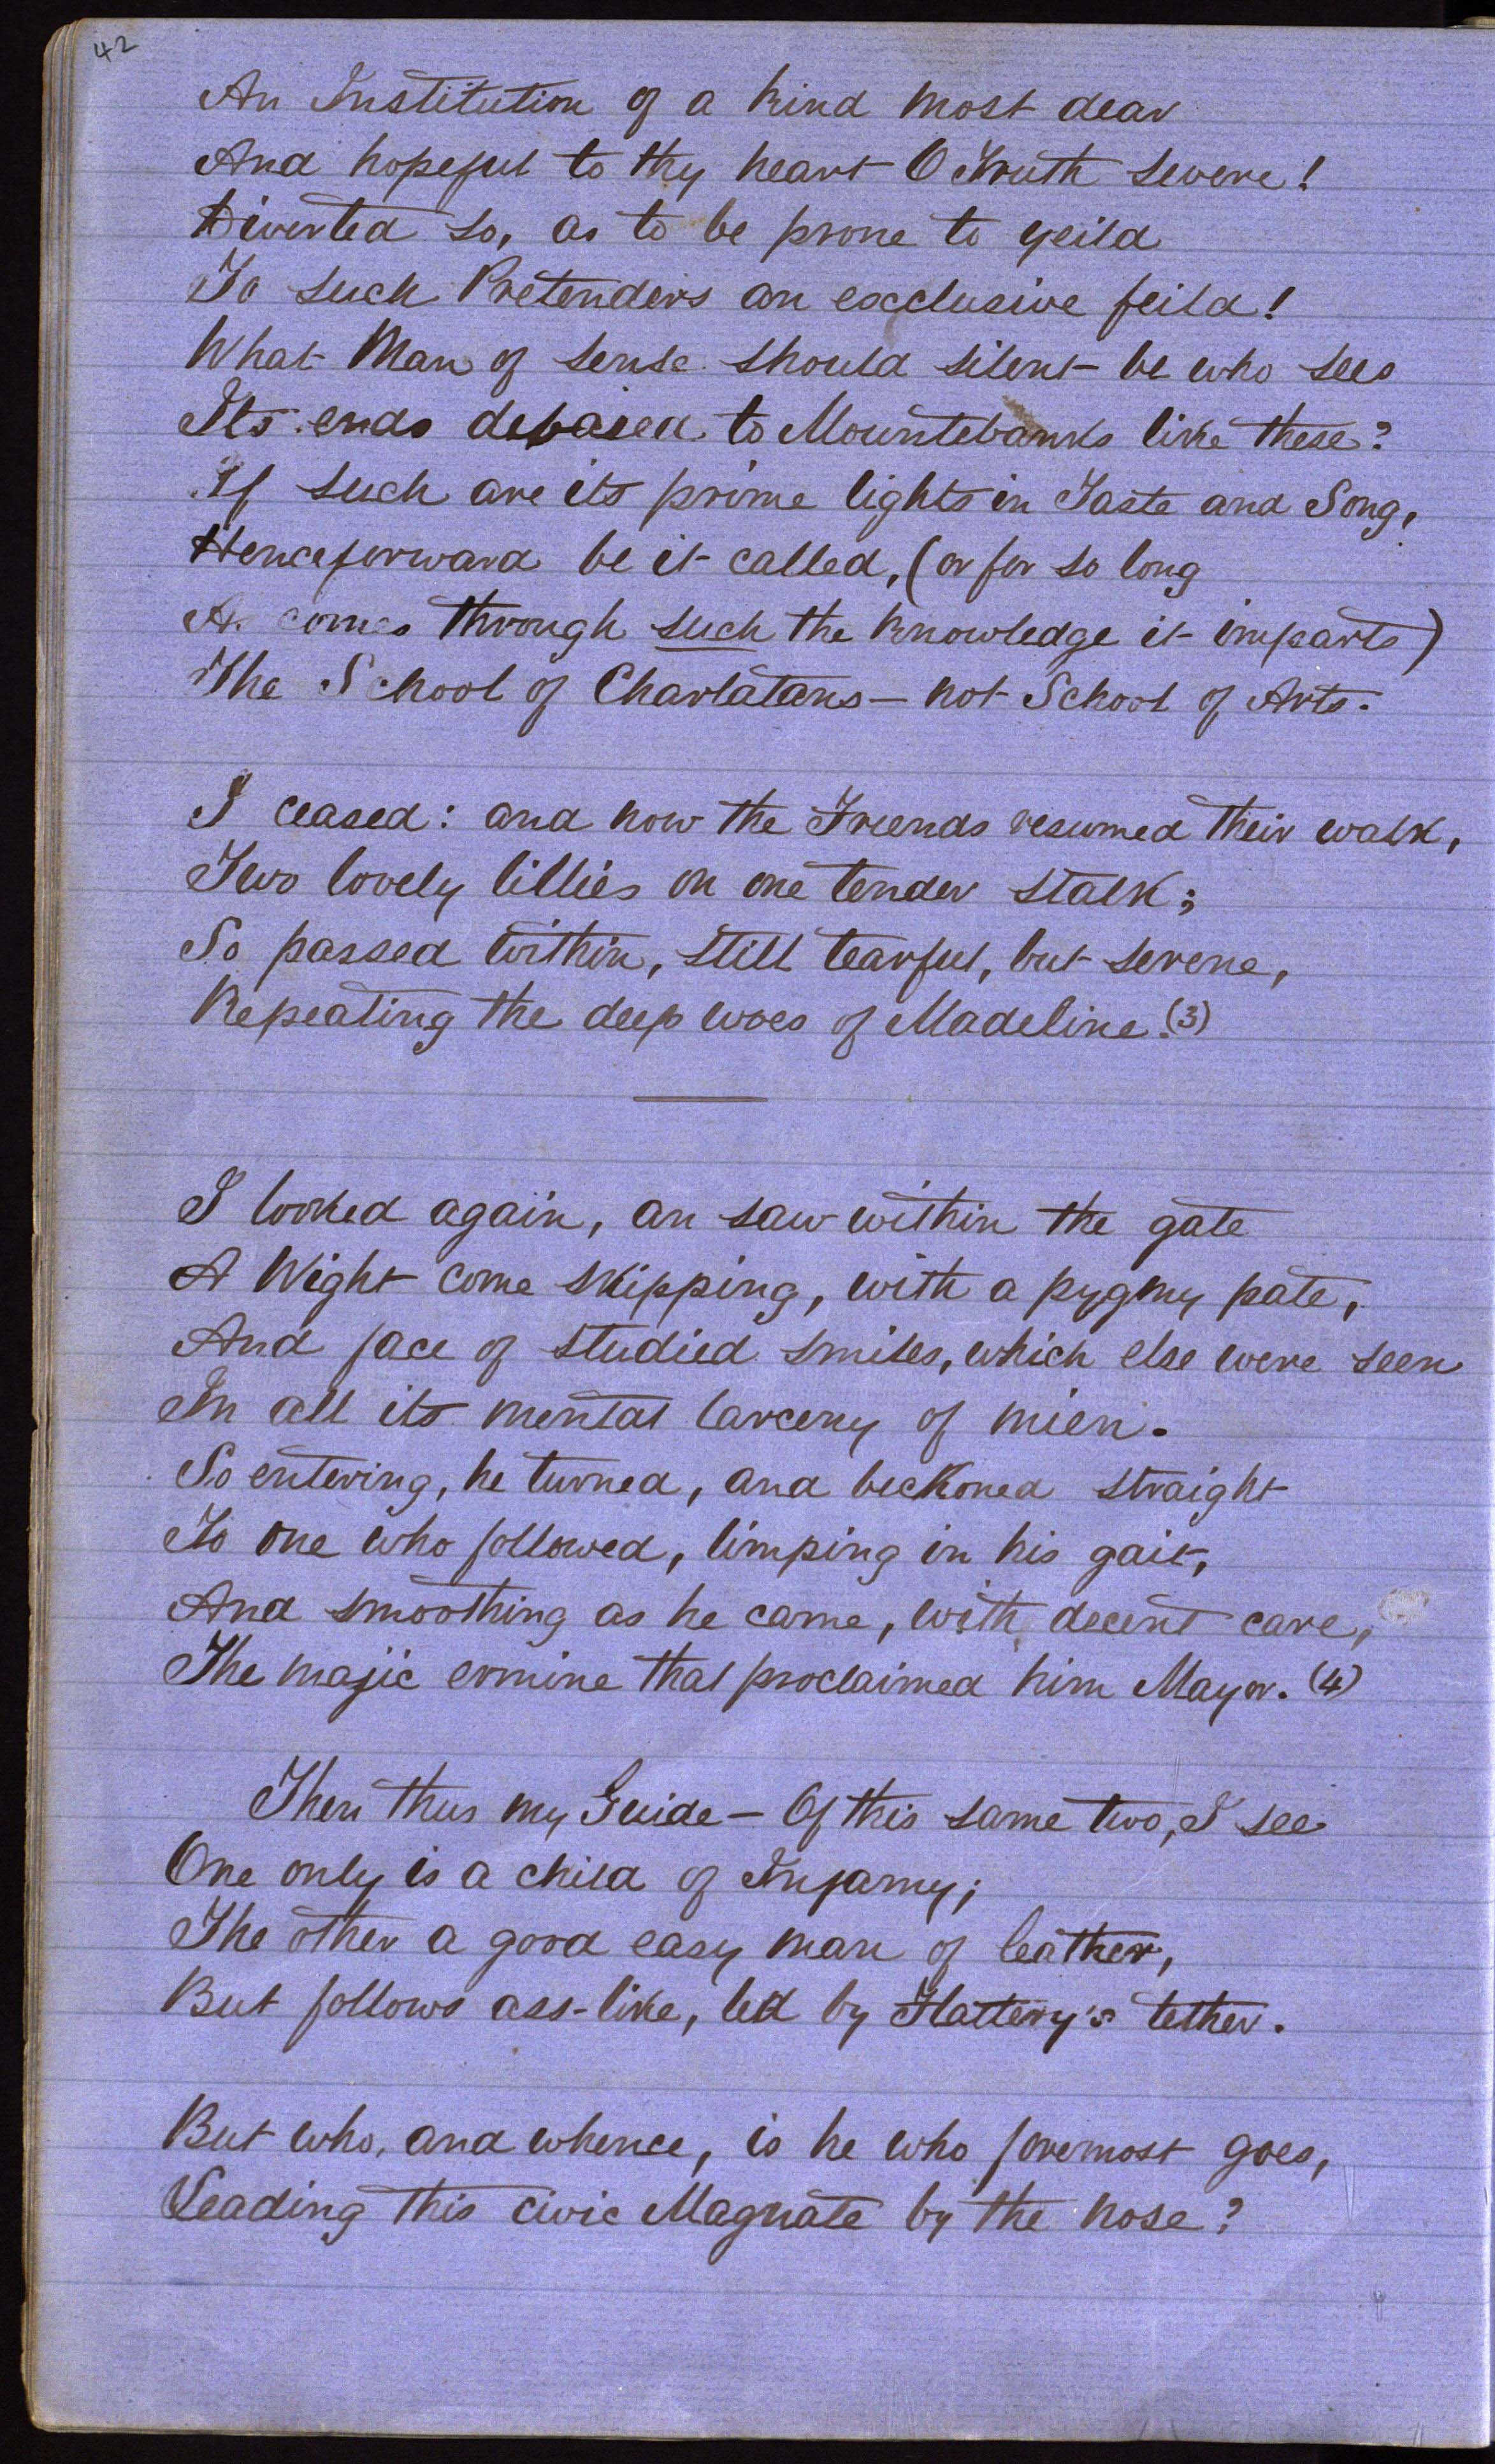 42
An Institution of a kind most dear
And hopeful to thy heart O Truth severe!
Diverted so, as to be prone to yeild
To such Pretenders an exclusive feild!
What Man of sense should silent be who sees
Its ends debased to Mountebanks like these?
If such are its prime lights in Taste and Song,
Henceforward be it called, (or for so long
As comes through such the knowledge it imparts)
The School of Charlatans — not School of Arts.
I ceased: and now the Friends resumed their walk,
Two lovely lillies on one tender stalk;
So passed within, still tearful, but serene,
Repeating the deep woes of Madeline. (3)
I looked again, an saw within the gate
A Wight come skipping, with a pygmy pate,
And face of studied smiles, which else were seen
In all its mental larceny of mien.
So entering, he turned, and beckoned straight
To one who followed, limping in his gait,
And smoothing as he came, with decent care,
The majic ermine that proclaimed him Mayor. (4)
Then thus my Guide — Of this same two, I see
One only is a child of Infamy;
The other a good easy man of leather,
But follows ass-like, led by Flattery's tether.
But who, and whence, is he who foremost goes,
Leading this civic Magnate by the nose?